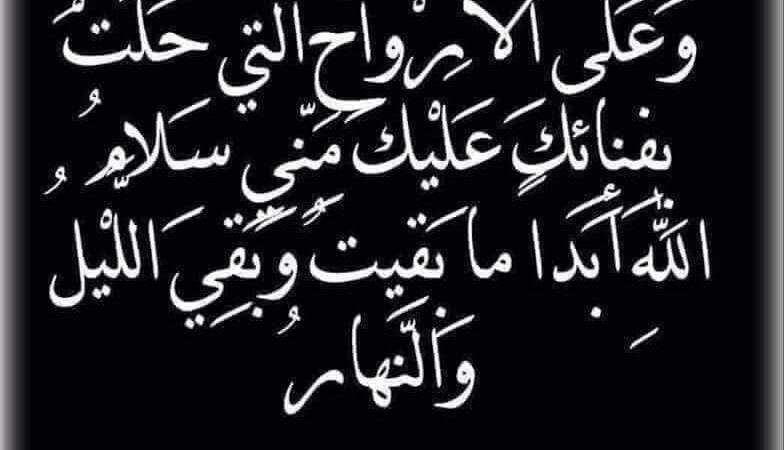 وَعَلَى الْاَرْوَاحِ الَّتِي حَلَّتْ
بِفِنَائِكَ عَلَيْكَ مِنِّي سَلَامُ
اللَّهِ أَبَدًا مَا بَقِيتُ وَبَقِيَ اللَّيْلُ
وَالنَّهَارُ